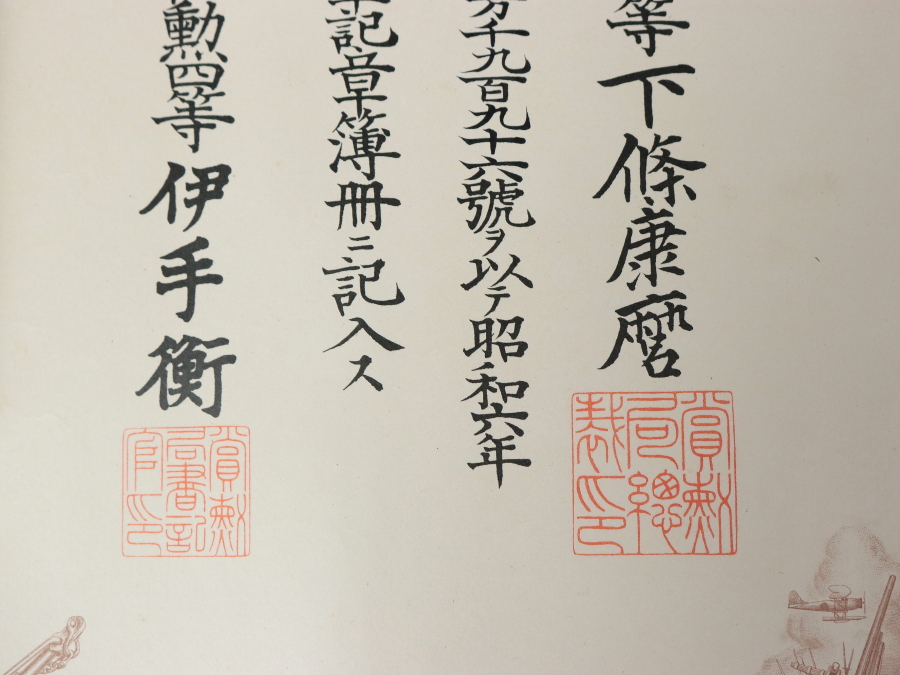 等下條康麿
賞勳局總裁印
千九百九十六號ヲ以テ昭和六年
軍記章簿冊ニ記入ス
勳四等伊手衡
賞勳局書記官印